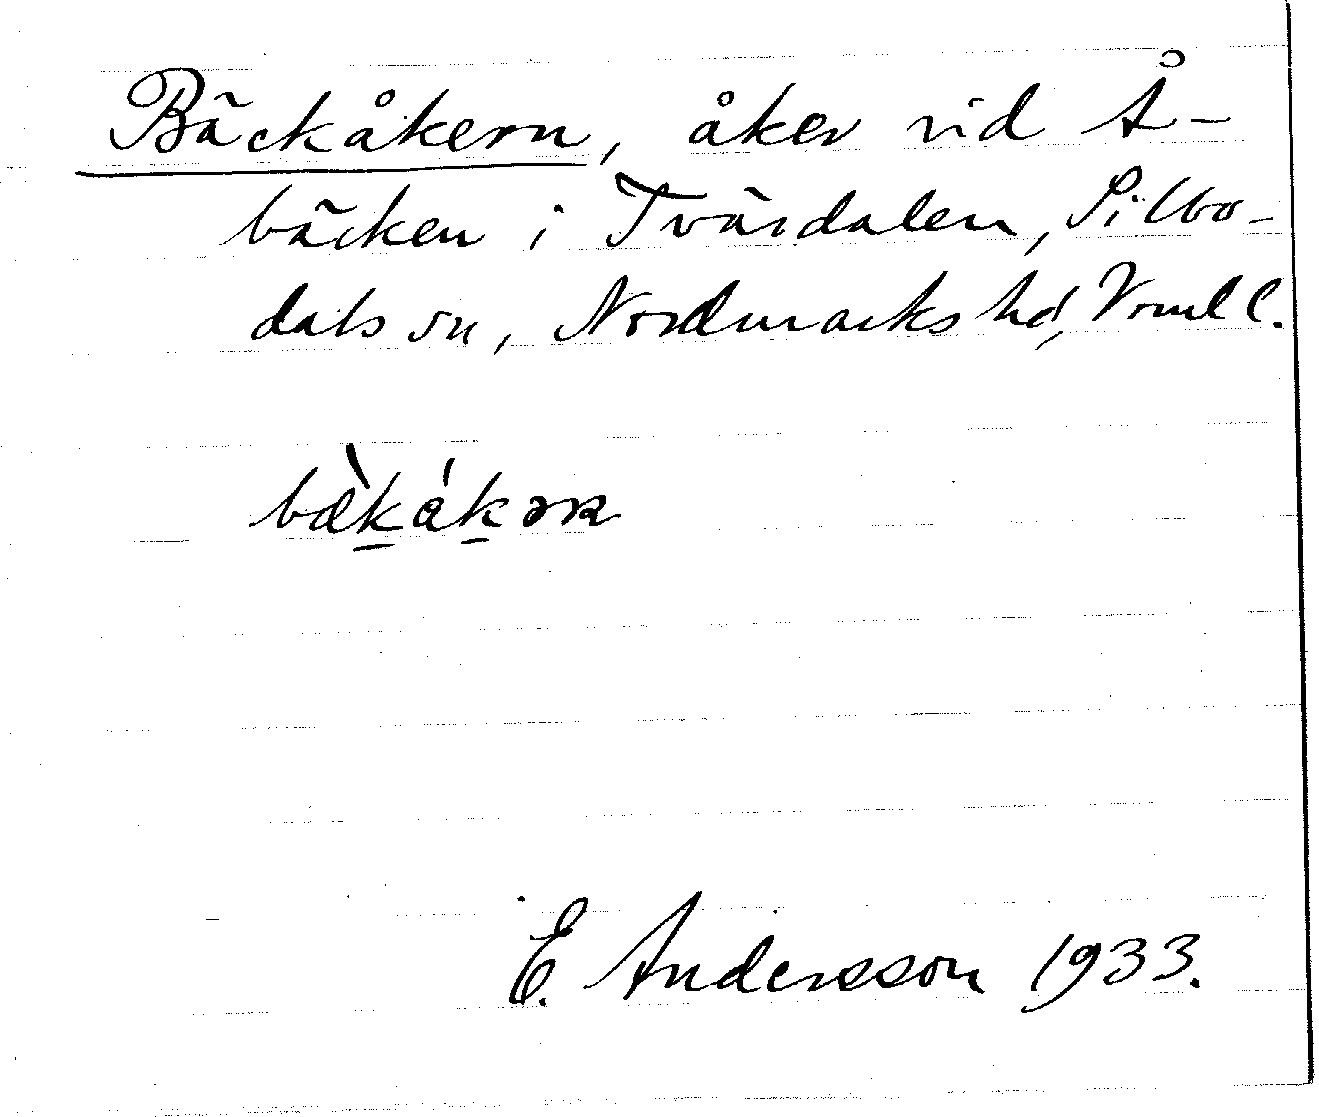 Bäckåkern, åker vid Å-
bäcken i Tvärdalen, Silbo-
dals sn, Nordmarks hd, Vrml l.
bæ̀k̠ák̠ən
E. Andersson 1933.